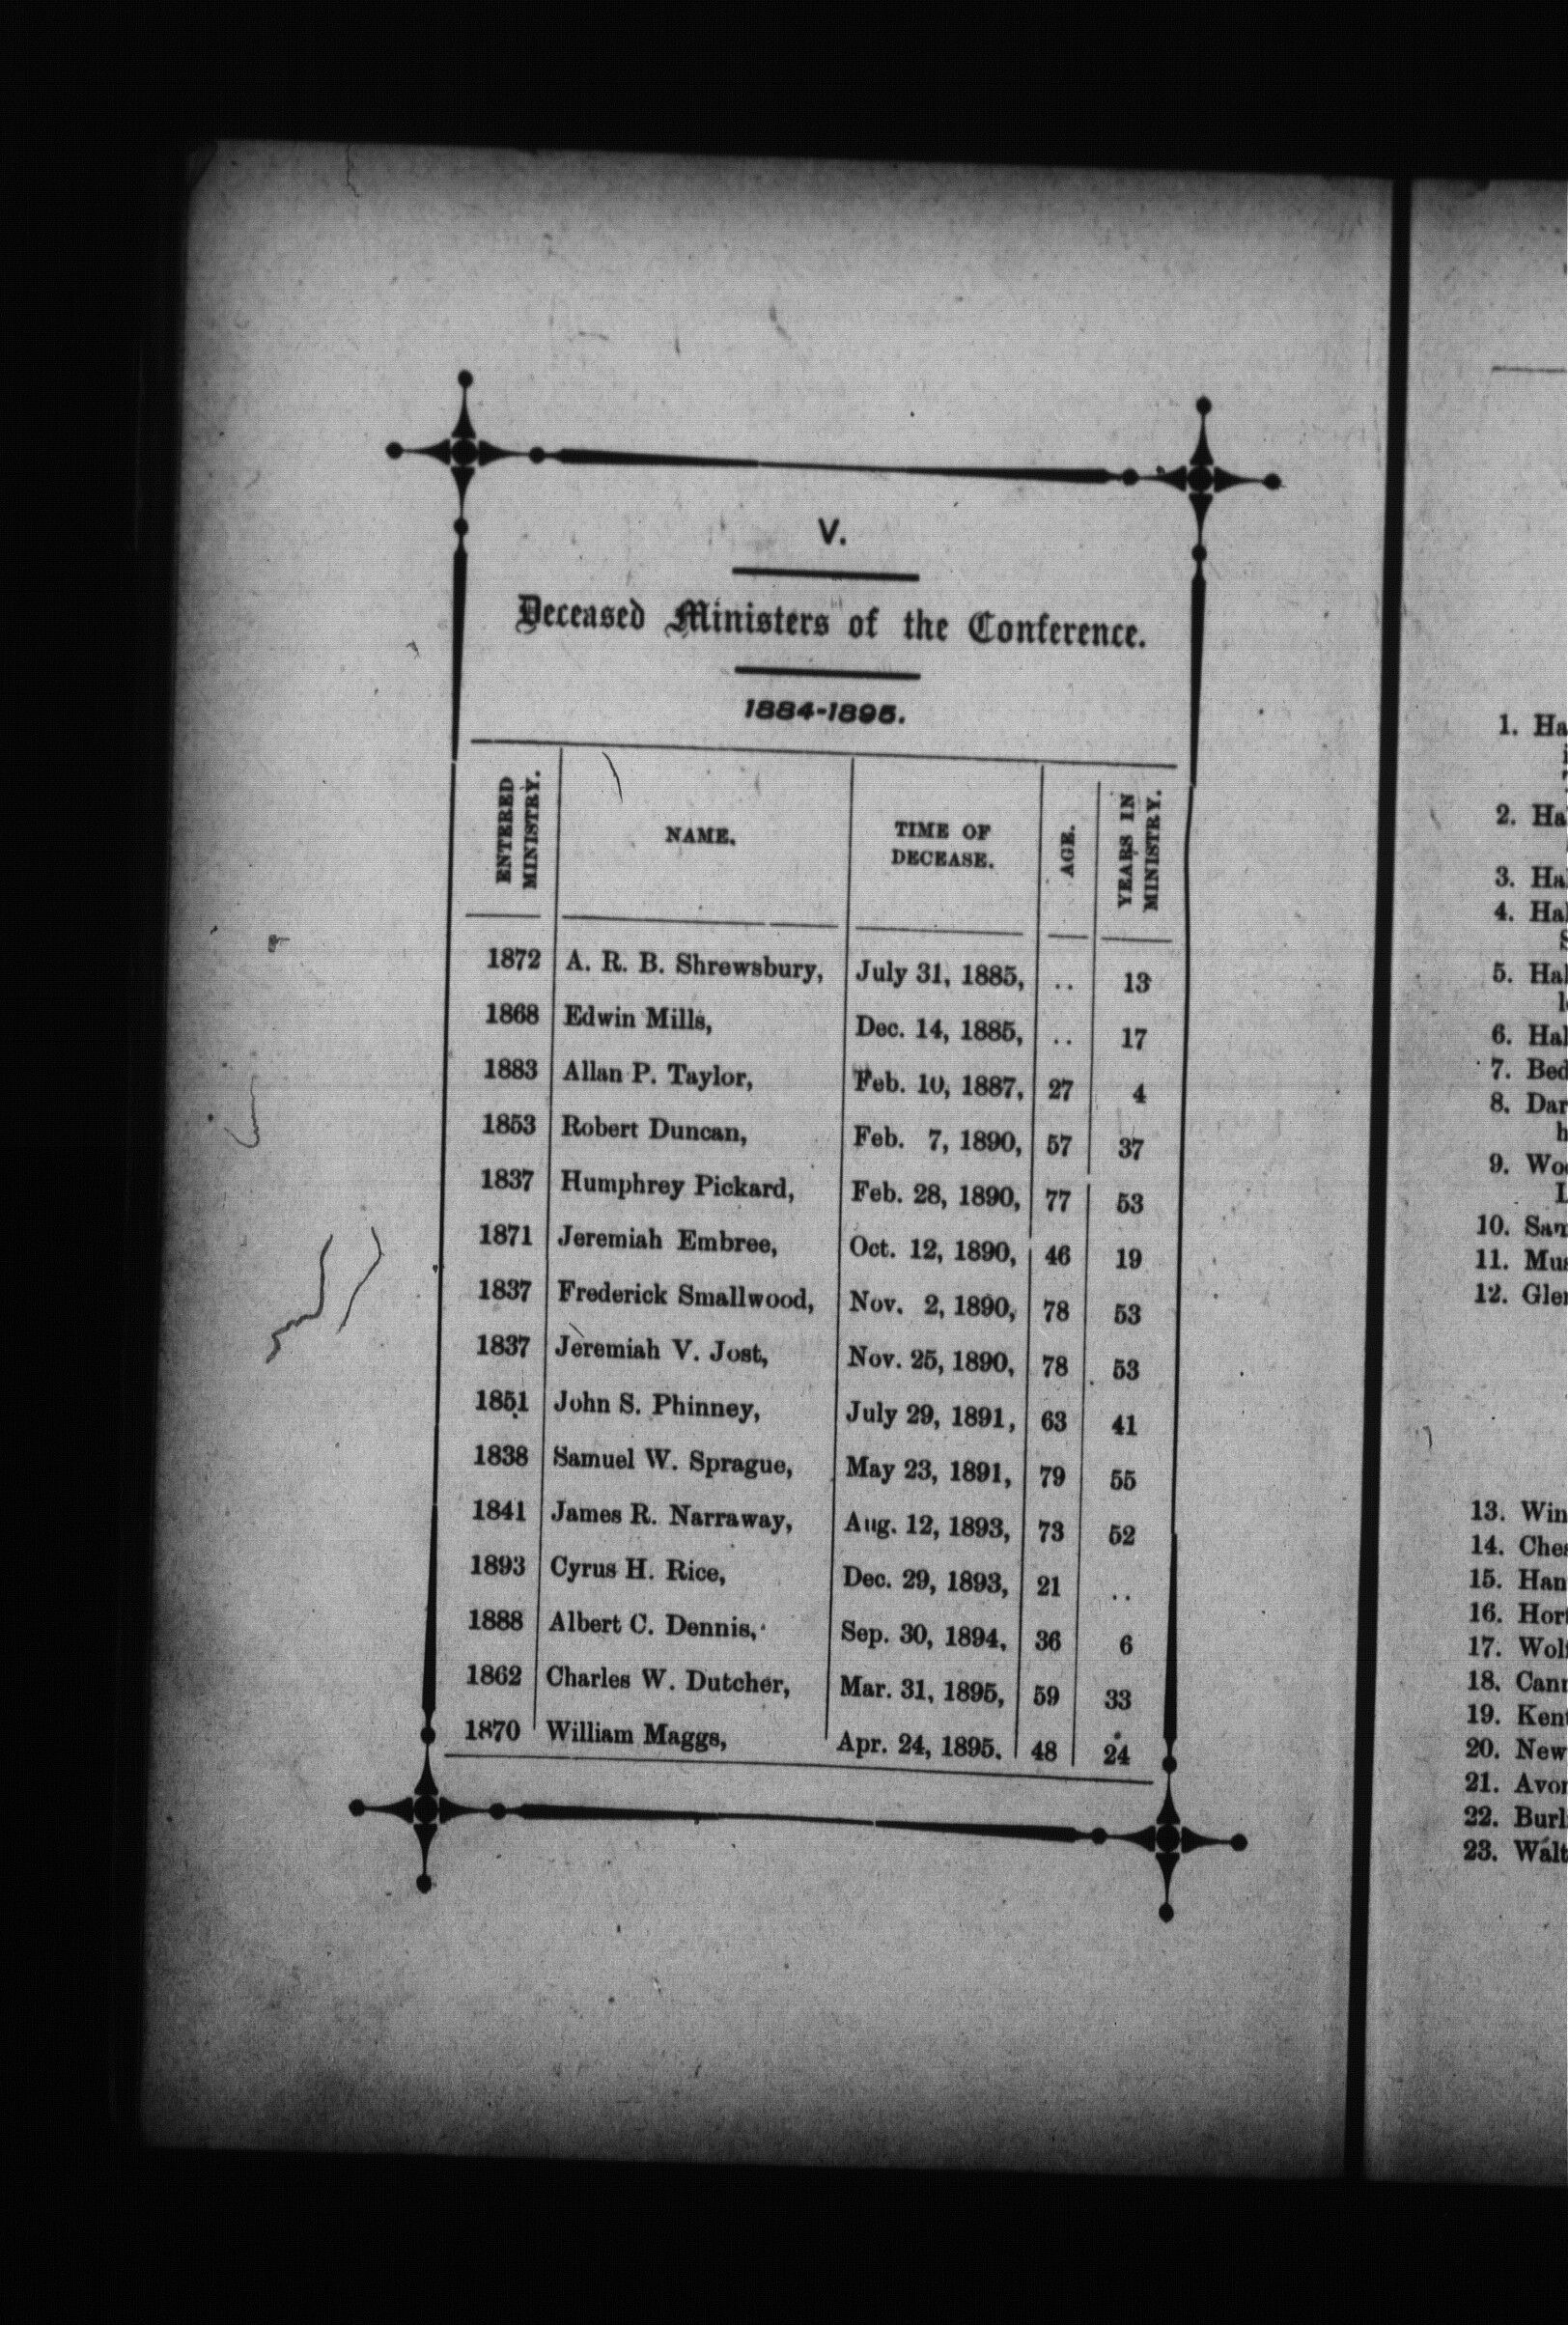 V.
Deceased Ministers of the Conference.
1884-1895.
ENTERED MINISTRY. NAME. TIME OF DECEASE. AGE. YEARS IN MINISTRY.
1872 A. R. B. Shrewsbury, July 31, 1885, .. 13
1868 Edwin Mills, Dec. 14, 1885, .. 17
1883 Allan P. Taylor, Feb. 10, 1887, 27 4
1853 Robert Duncan, Feb. 7, 1890, 57 37
1837 Humphrey Pickard, Feb. 28, 1890, 77 53
1871 Jeremiah Embree, Oct. 12, 1890, 46 19
1837 Frederick Smallwood, Nov. 2, 1890, 78 53
1837 Jeremiah V. Jost, Nov. 25, 1890, 78 53
1851 John S. Phinney, July 29, 1891, 63 41
1838 Samuel W. Sprague, May 23, 1891, 79 55
1841 James R. Narraway, Aug. 12, 1893, 73 52
1893 Cyrus H. Rice, Dec. 29, 1893, 21 ..
1888 Albert C. Dennis, Sep. 30, 1894, 36 6
1862 Charles W. Dutcher, Mar. 31, 1895, 59 33
1870 William Maggs, Apr. 24, 1895. 48 24
1. Ha
2. Ha
3. Hal
4. Hal
S
5. Hal
6. Hal
7. Bed
8. Dar
h
9. Woo
L
10. Sam
11. Mus
12. Glen
13. Win
14. Ches
15. Han
16. Hort
17. Wolf
18. Cann
19. Kent
20. New
21. Avon
22. Burli
23. Walt